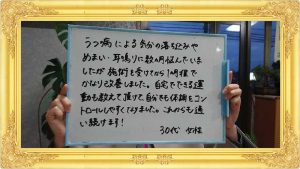 うつ病による気分の落ち込みや
めまい・耳鳴りに数ヶ月悩んでいま
したが施術を受けてから1ヶ月程で
かなり改善しました。自宅でできる運
動も教えて頂けて、自分でも体調をコン
トロールしやすくなりました。これからも通
い続けます!
30代 女性